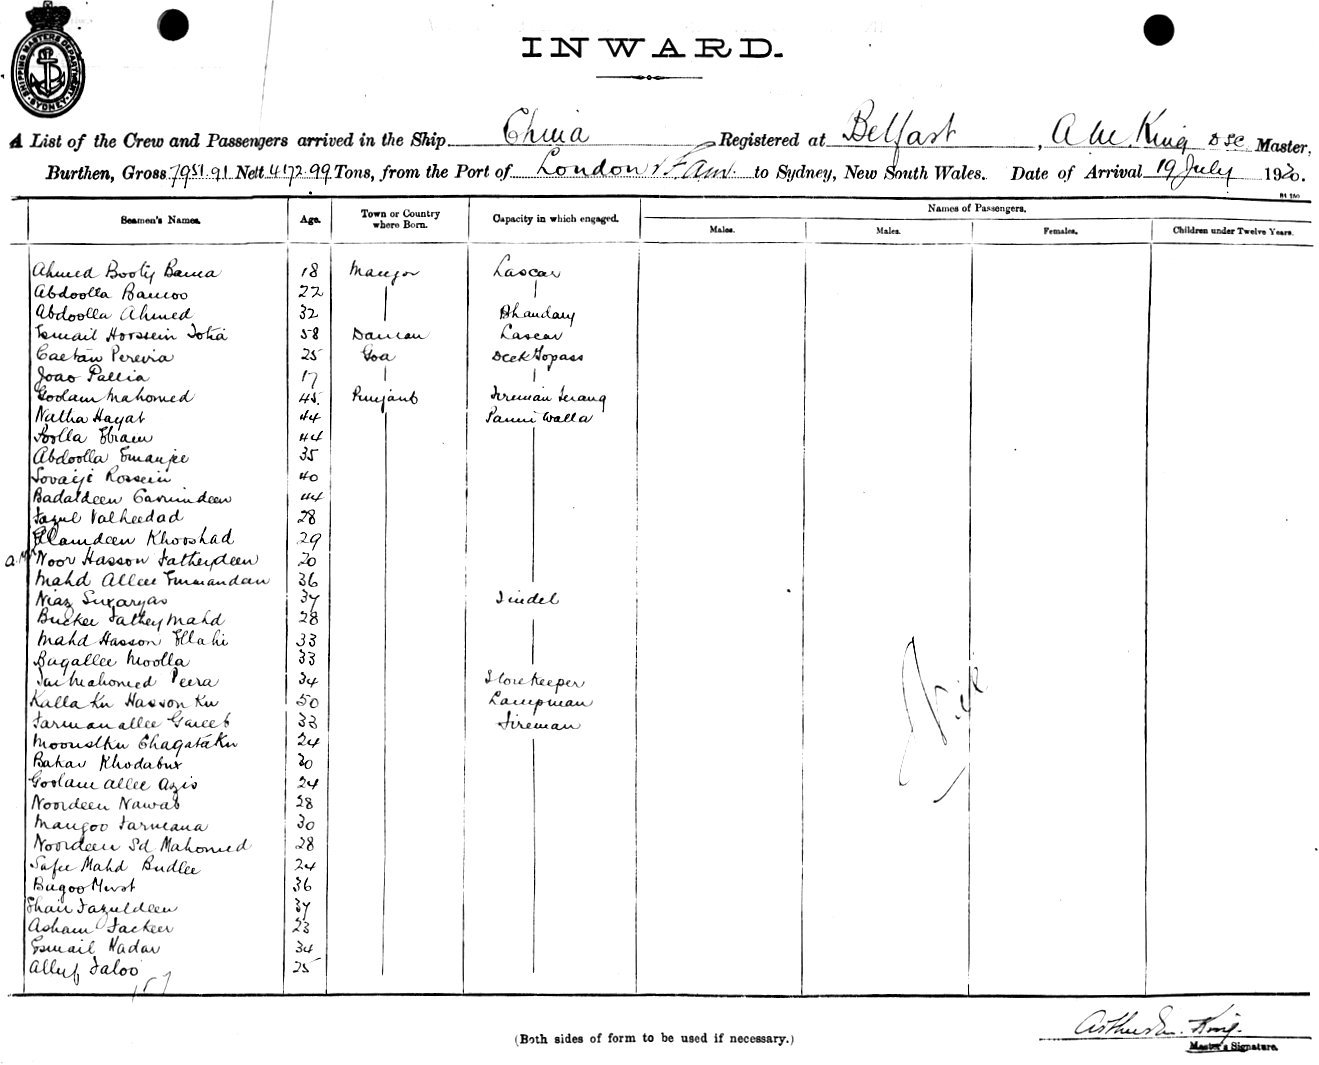 SHIPPING MASTERS DEPARTMENT SYDNEY
INWARD.
A List of the Crew and Passengers arrived in the Ship China Registered at Belfast, A W. King DSC Master,
Burthen, Gross 7951.91 Nett 4172.99 Tons, from the Port of London to Sydney, New South Wales. Date of Arrival 19 July 1920.
Seamen's Names. Age. Town or Country where Born. Capacity in which engaged. Names of Passengers.
Males. Males. Females. Children under Twelve Years.
Ahmed Booty Bawa 18 Lascar
Abdoolla Bamoo 22
Abdoolla Ahmed 32 Bhandary
Esmail Hossein 58 Daman Lascar
Caetan Pereira 25 Goa Deck Topass
Joao Pallia 17
Goolam Mahomed 45 Punjaub Fireman Serang
Natha Hayat 44 Panni Walla
44
Abdoolla 35
40
Badaldeen 44
Fazul Valheedad 28
Elamdeen Khooshad 29
Noor Hasson Fatheydeen 20
Mahd Allee 36
Niaz 37 Tindel
Fathey Mahd 28
Mahd Hasson Ellahi 33
Bugallee Moolla 33
Mahomed Peera 34 Storekeeper
Kalla Ku Hasson Ku 50 Lampman
Farman allee Gareeb 33 Fireman
24
Khodabux 30
Goolam allee Azis 24
Noordeen Nawab 28
Mangoo 30
Noordeen Sd Mahomed 28
Mahd Budlee 24
Bugoo 36
Fazuldeen 37
Asham Fackeer 23
Esmail Hadar 34
Alluf Faloo 25
157
Nil
(Both sides of form to be used if necessary.)
Arthur W. King.
Master's Signature.